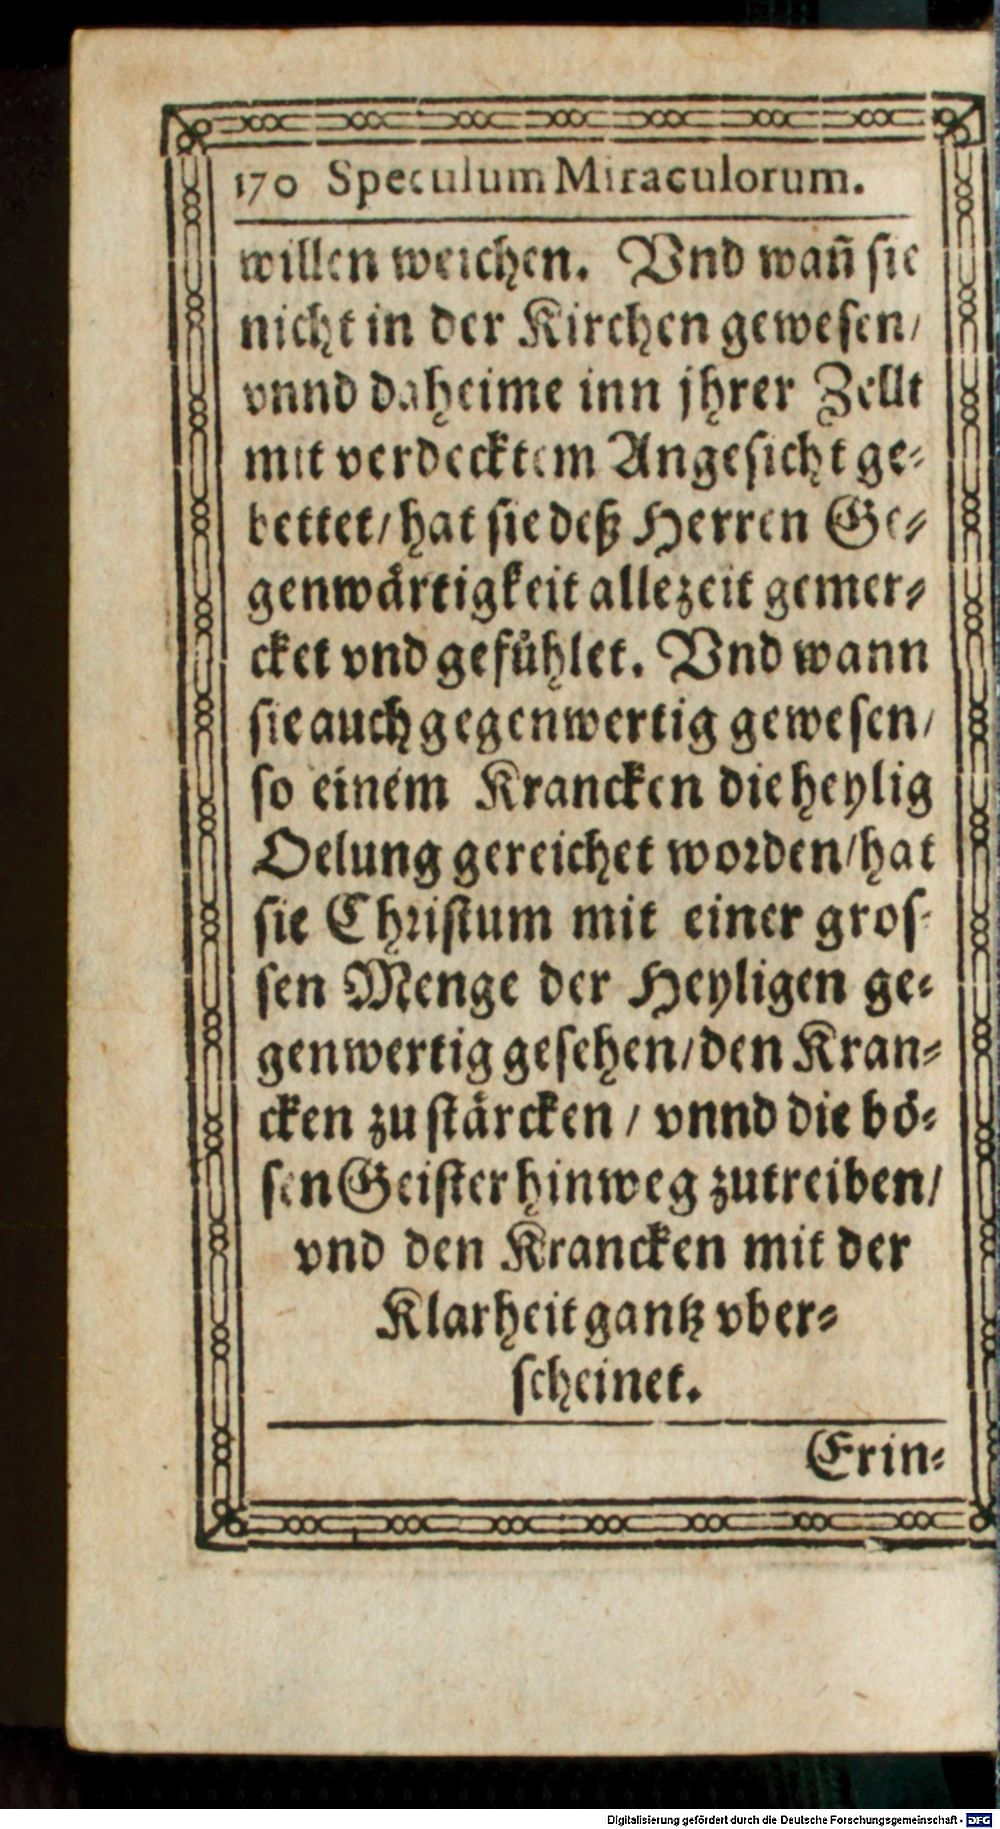 170 Speculum Miraculorum.
willen weichen. Vnd wañ sie
nicht in der Kirchen gewesen/
vnnd daheime inn jhrer Zellt
mit verdecktem Angesicht ge-
bettet/ hat sie deß Herren Ge-
genwårtigkeit allezeit gemer-
cket vnd gefůhlet. Vnd wann
sie auch gegenwertig gewesen/
so einem Krancken die heylig
Oelung gereichet worden/ hat
sie Christum mit einer gros-
sen Menge der Heyligen ge-
genwertig gesehen/ den Kran-
cken zu stårcken / vnnd die bô-
sen Geister hinweg zutreiben/
vnd den Krancken mit der
Klarheit gantz vber-
scheinet.
Erin-
Digitalisierung gefördert durch die Deutsche Forschungsgemeinschaft - DFG